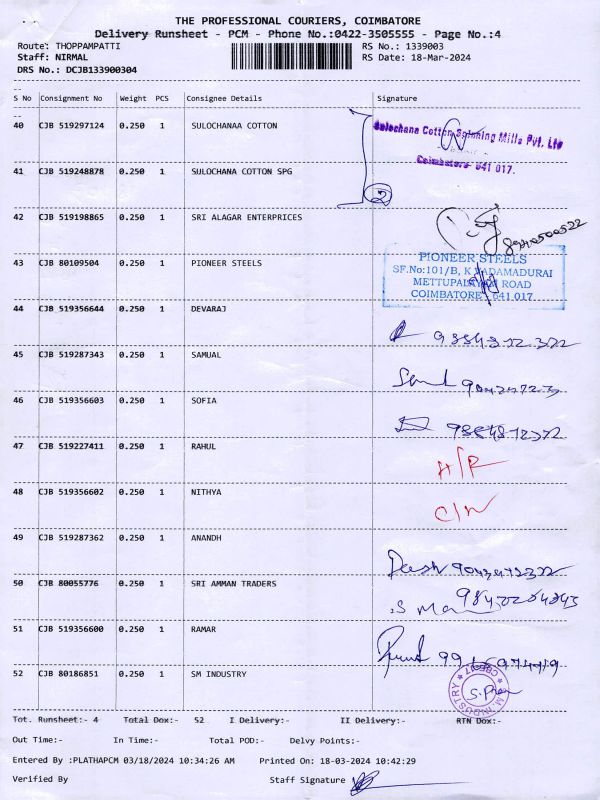 THE PROFESSIONAL COURIERS, COIMBATORE
Delivery Runsheet - PCM - Phone No.:0422-3505555 - Page No.:4
Route: THOPPAMPATTI RS No.: 1339003
Staff: NIRMAL RS Date: 18-Mar-2024
DRS No.: DCJB133900304
S No Consignment No Weight PCS Consignee Details Signature
40 CJB 519297124 0.250 1 SULOCHANAA COTTON
Sulochana Cotton Spinning Mills Pvt. Ltd
Coimbatore- 641 017.
41 CJB 519248878 0.250 1 SULOCHANA COTTON SPG
2
42 CJB 519198865 0.250 1 SRI ALAGAR ENTERPRICES
43 CJB 80109504 0.250 1 PIONEER STEELS
PIONEER STEELS
SF.No:101/B, K.VADAMADURAI
METTUPALAYAM ROAD
COIMBATORE - 641 017
44 CJB 519356644 0.250 1 DEVARAJ
45 CJB 519287343 0.250 1 SAMUAL
46 CJB 519356603 0.250 1 SOFIA
47 CJB 519227411 0.250 1 RAHUL
48 CJB 519356602 0.250 1 NITHYA
49 CJB 519287362 0.250 1 ANANDH
50 CJB 80055776 0.250 1 SRI AMMAN TRADERS
51 CJB 519356600 0.250 1 RAMAR
52 CJB 80186851 0.250 1 SM INDUSTRY
Tot. Runsheet:- 4 Total Dox:- 52 I Delivery:- II Delivery:- RTN Dox:-
Out Time:- In Time:- Total POD:- Delvy Points:-
Entered By :PLATHAPCM 03/18/2024 10:34:26 AM Printed On: 18-03-2024 10:42:29
Verified By Staff Signature